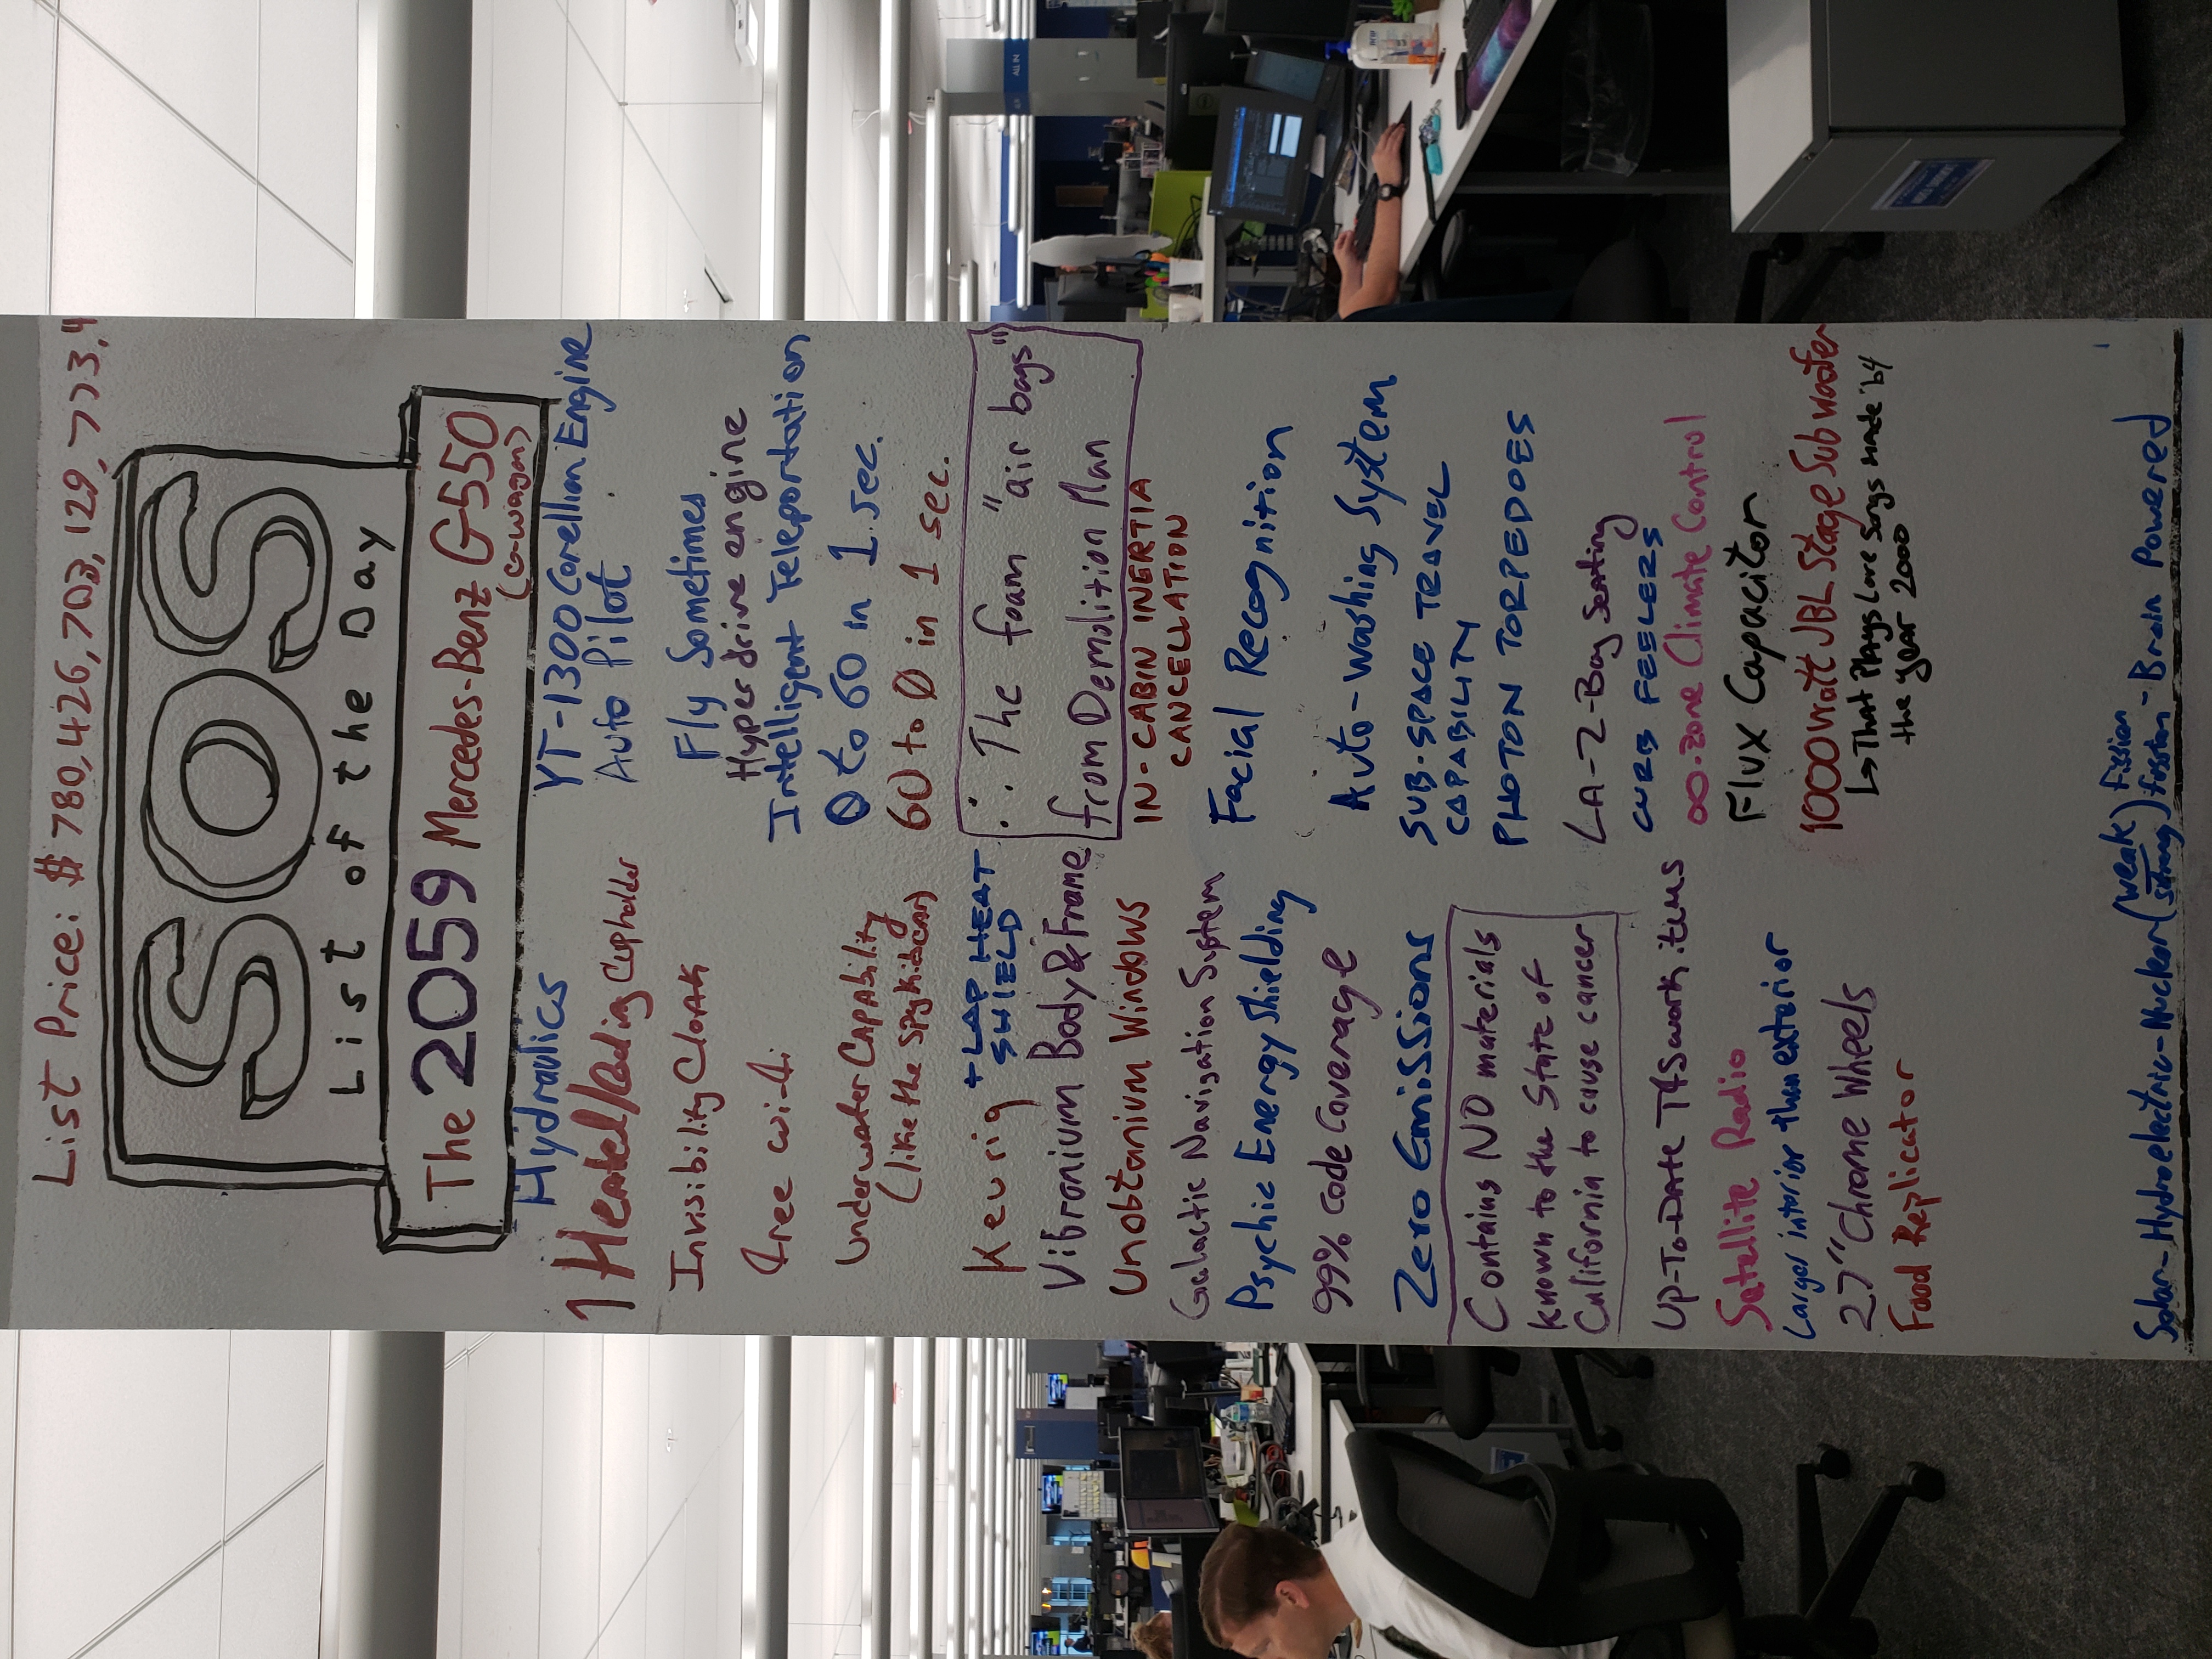 List Price: $780,426,703,129,773,4
SOS
List of the Day
The 2059 Mercedes-Benz G550
(G-wagon)
Hydraulics
1 Heated/Cooling Cupholder
Invisibility Cloak
free wi-fi
Underwater Capability
(like the spy kids car)
Keurig + LAP HEAT
SHIELD
Vibranium Body & Frame
Unobtanium Windows
Galactic Navigation System
Psychic Energy Shielding
99% code Coverage
Zero Emissions
Contains NO materials
known to the State of
California to cause cancer
Up-To-Date TFS work items
Satellite Radio
Larger interior than exterior
27" Chrome Wheels
Food Replicator
YT-1300 Corellian Engine
Auto Pilot
Fly Sometimes
Hyperdrive engine
Intelligent Teleportation
0 to 60 in 1 sec.
60 to 0 in 1 sec.
∴ The foam "air bags"
from Demolition Man
IN-CABIN INERTIA
CANCELLATION
Facial Recognition
Auto-washing System
SUB-SPACE TRAVEL
CAPABILITY
PHOTON TORPEDOES
LA-Z-Boy Seating
CURB FEELERS
∞-zone Climate Control
Flux Capacitor
1000 watt JBL Stage Subwoofer
↳ That Plays Love Songs made by
the year 2000
Solar-Hydroelectric-Nuclear (weak/strong) Fission/fusion - Brain Powered
ALL IN